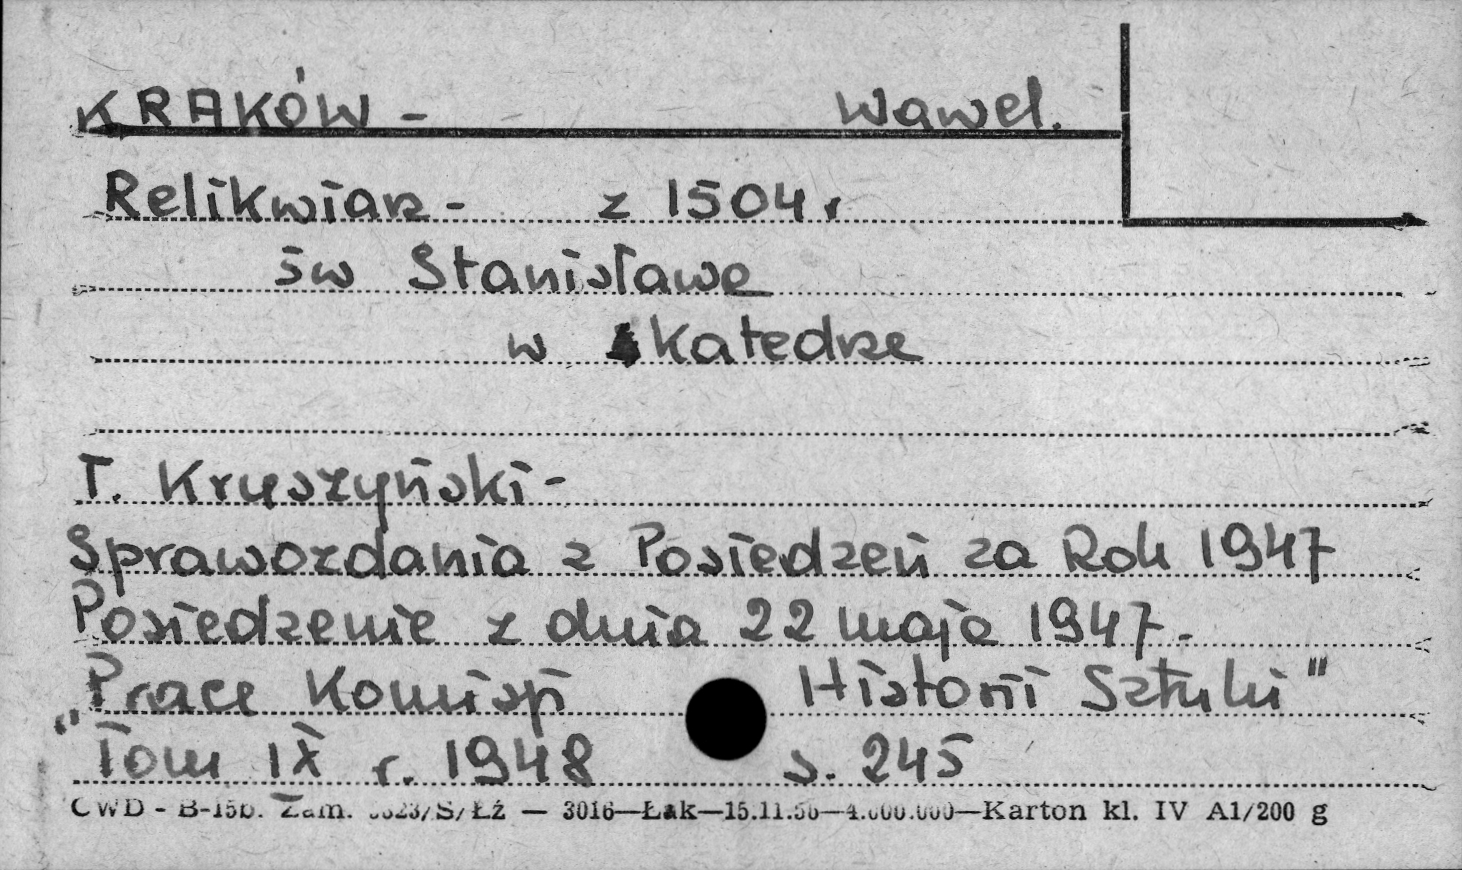 KRAKÓW - Wawel.
Relikwiarz - z 1504 r
św Stanisława
w Katedrze
T. Kruszyński -
Sprawozdania z Posiedzeń za Rok 1947
Posiedzenie z dnia 22 maja 1947. -
"Prace Komisji Historii Sztuki"
Tom IX r. 1948 s. 245
CWD - B-15b. Zam. /S/Łź — 3016—Łak—15.11.56—4.000.000—Karton kl. IV A1/200 g